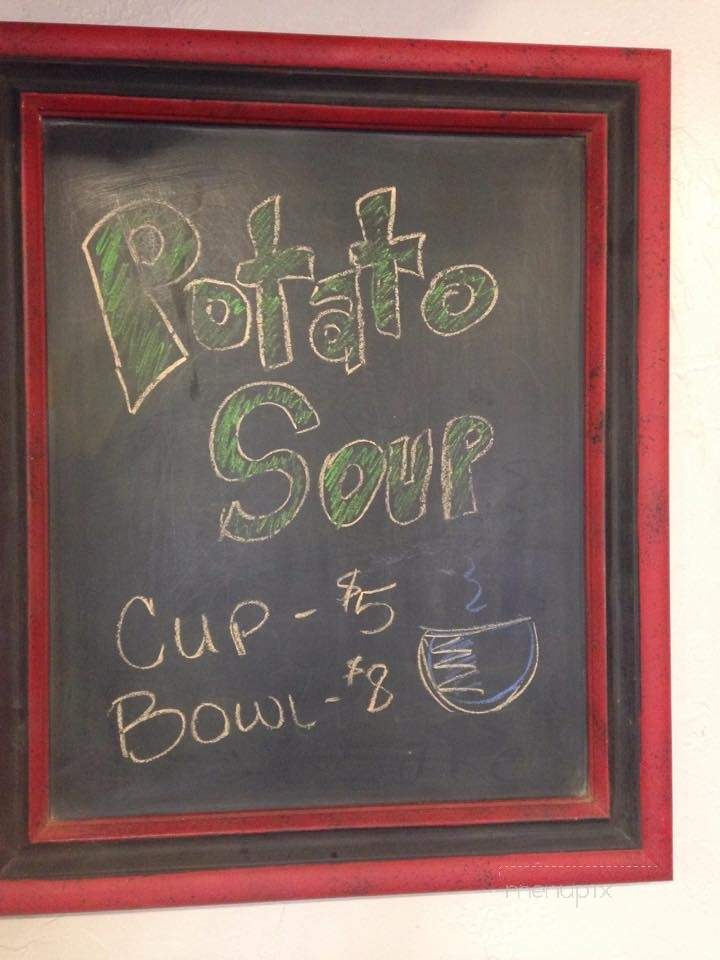 Potato
Soup
Cup - $5
Bowl - $8
menupix